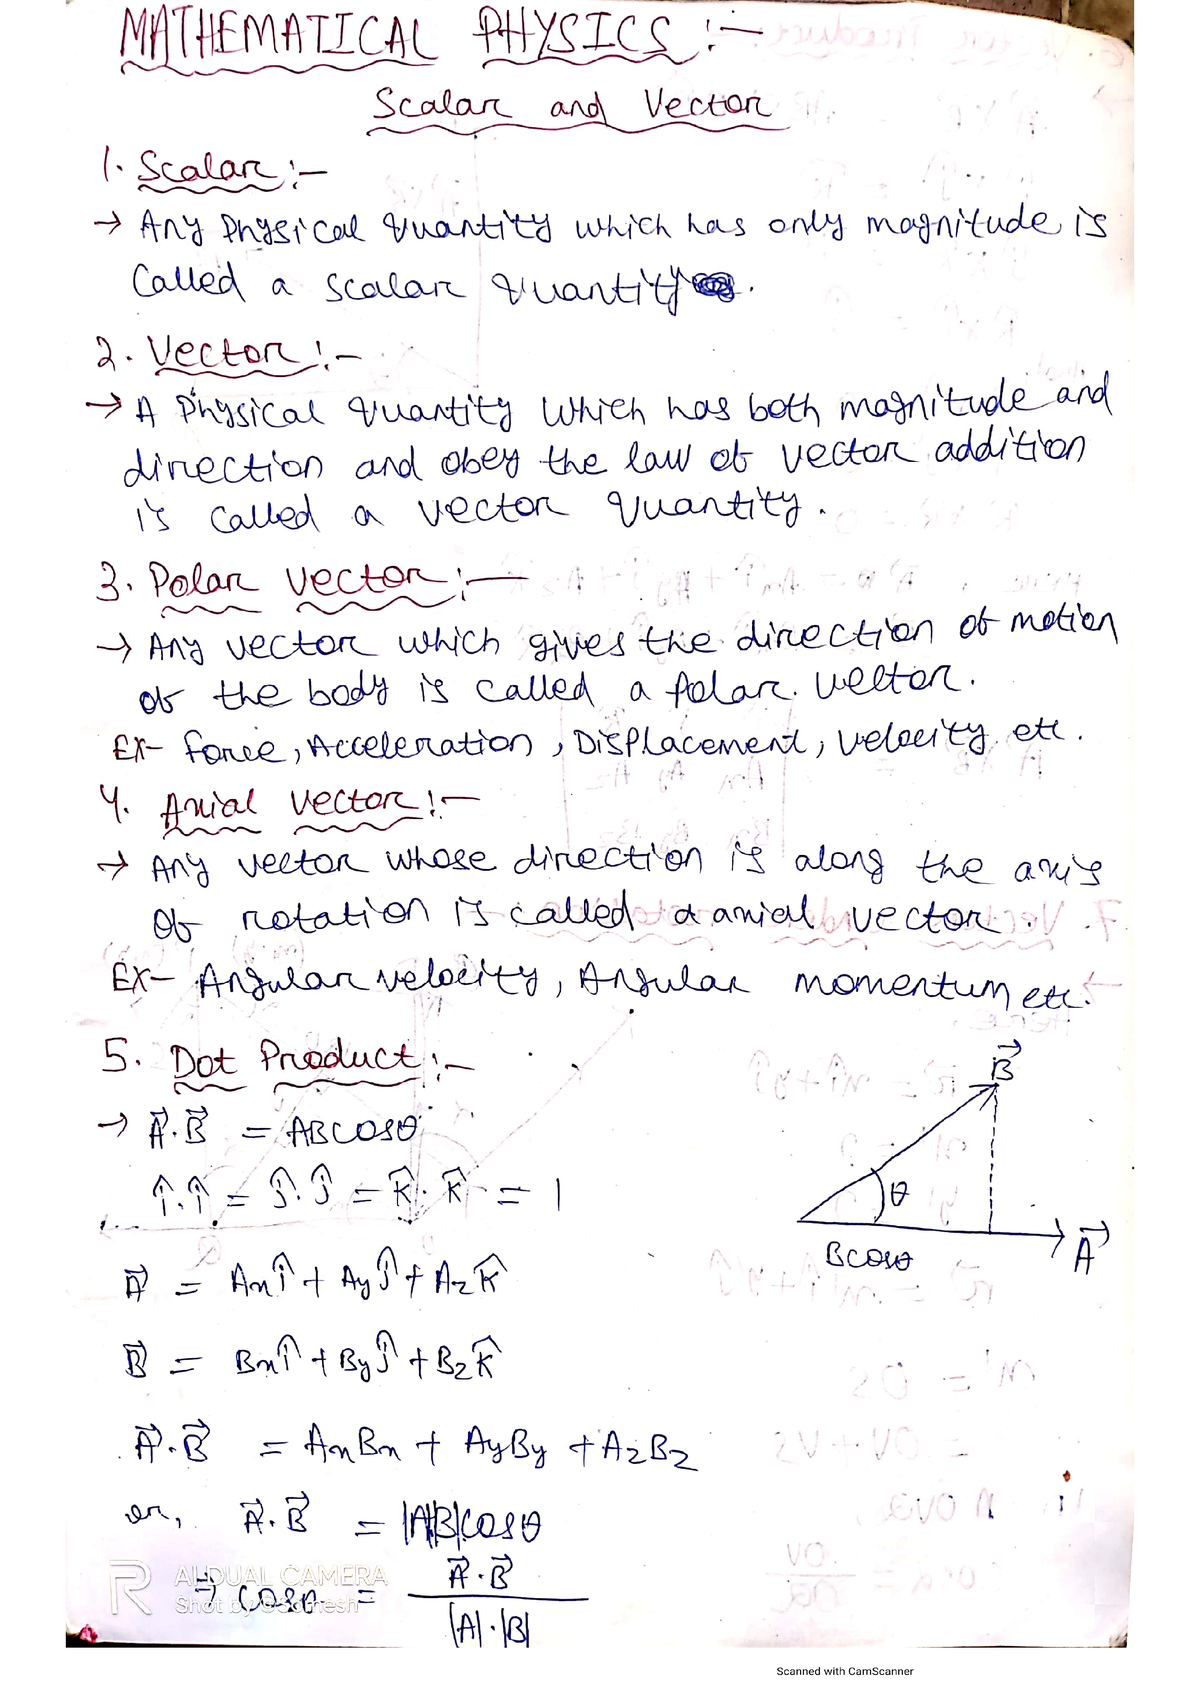 MATHEMATICAL PHYSICS :-
Scalar and Vector
1. Scalar :-
→ Any Physical Quantity which has only magnitude is
Called a scalar quantity.
2. Vector :-
→ A Physical quantity which has both magnitude and
direction and obey the law of vector addition
is called a vector quantity.
3. Polar vector :-
→ Any vector which gives the direction of motion
of the body is called a Polar vector.
Ex- Force, Acceleration, Displacement, velocity etc.
4. Axial vector :-
→ Any vector whose direction is along the axis
of rotation is called a axial vector.
Ex- Angular velocity, Angular momentum etc.
5. Dot Product :-
→ A⃗.B⃗ = ABCOSθ
î.î = ĵ.ĵ = k̂.k̂ = 1
B⃗
θ
Bcosθ
A⃗
A⃗ = Axî + Ayĵ + Azk̂
B⃗ = Bxî + Byĵ + Bzk̂
A⃗.B⃗ = AxBx + AyBy + AzBz
or, A⃗.B⃗ = |A||B|cosθ
⇒ cosθ = A⃗.B⃗ / |A|.|B|
AI DUAL CAMERA
Shot by
Scanned with CamScanner